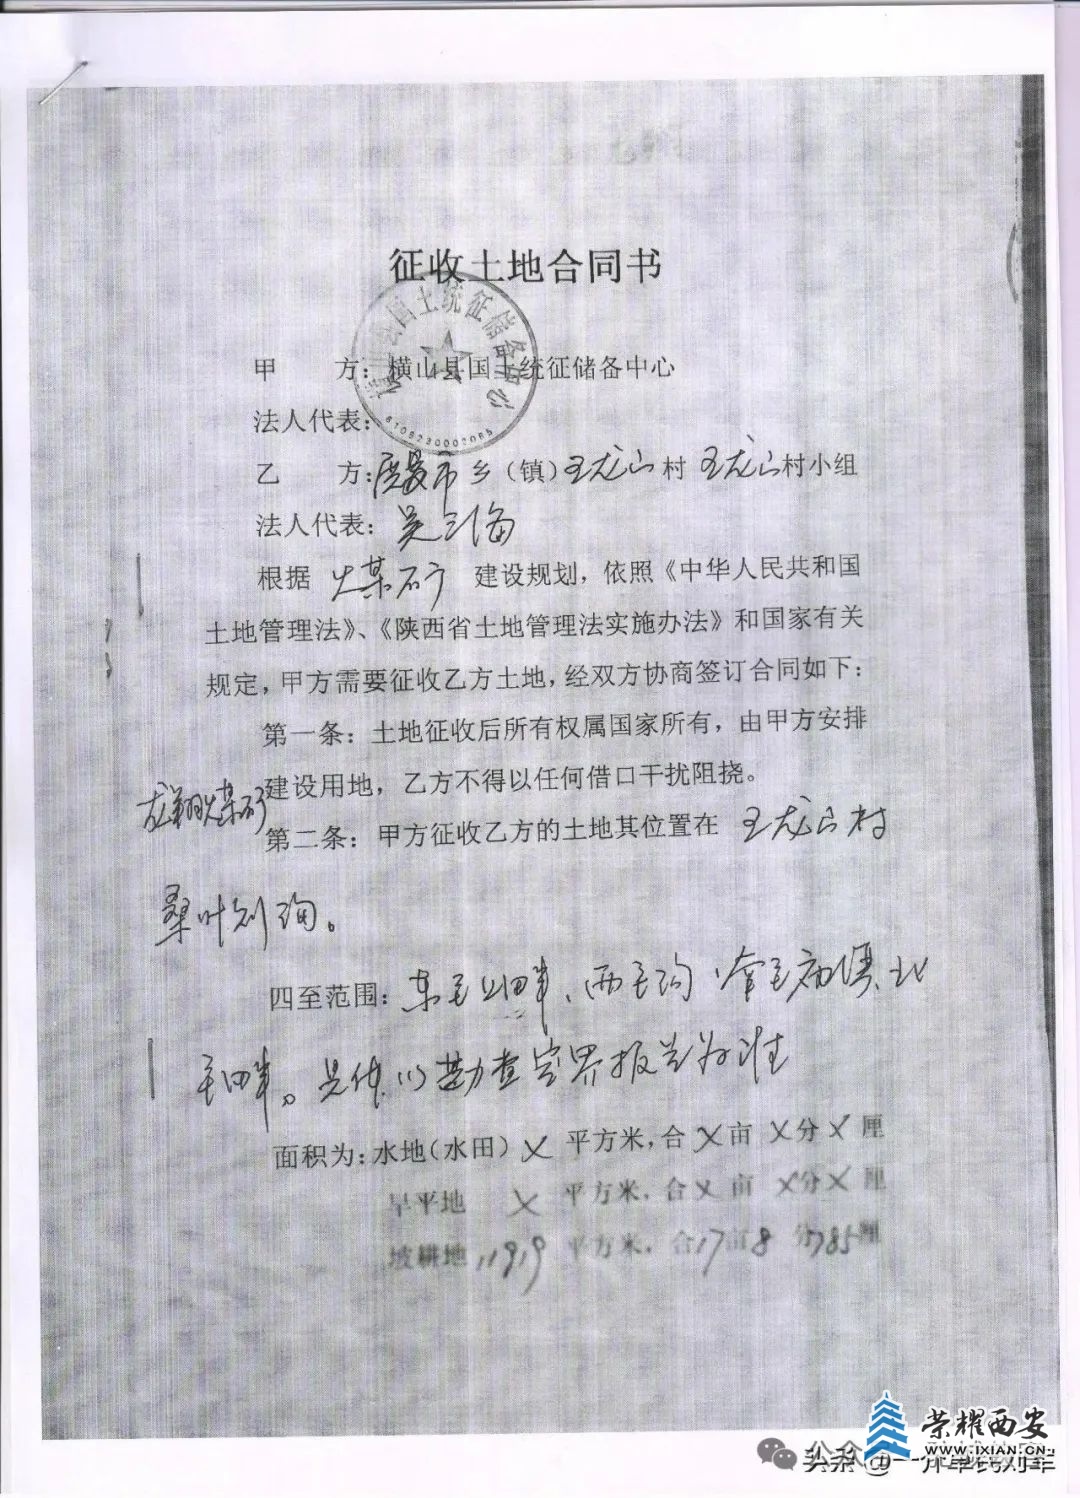 征收土地合同书
甲 方：横山县国土统征储备中心
国土统征储备中心
6108230002085
法人代表：
乙 方：殿市乡（镇）王龙山村 王龙山村小组
法人代表：吴
根据 煤矿 建设规划，依照《中华人民共和国
土地管理法》、《陕西省土地管理法实施办法》和国家有关
规定，甲方需要征收乙方土地，经双方协商签订合同如下：
第一条：土地征收后所有权属国家所有，由甲方安排
建设用地，乙方不得以任何借口干扰阻挠。
龙翔煤矿
第二条：甲方征收乙方的土地其位置在 王龙山村
桑叶
四至范围：东至 畔、西至沟、
至田畔。具体以勘查定界报告为准
面积为：水地（水田）X 平方米，合X亩 X分X厘
旱平地 X 平方米，合X亩 X分X厘
坡耕地 11919 平方米，合17亩8分785厘
荣耀西安
WWW.IXIAN.CN
公众
头条 @